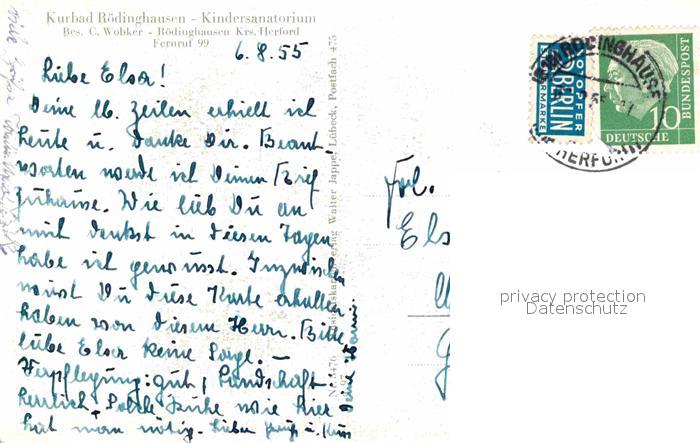 Kurbad Rödinghausen - Kindersanatorium
Bes. C. Wobker - Rödinghausen Krs. Herford
Fernruf 99
6.8.55
Liebe Elsa!
Deine lb. Zeilen erhielt ich
heute u. danke Dir. Beant-
worten werde ich Deinen Brief
zuhause. Wie lieb Du an
mich denkst in diesen Tagen
habe ich gewusst. Inzwischen
wirst Du diese Karte erhalten
haben von diesem Herrn. Bitte
liebe Elsa keine Sorge. —
Verpflegung: gut, Landschaft
herrlich + solche Ruhe wie hier
hat man nötig. Lieben Gruß u. Kuss
Deine
Viele Grüße
Ansichtskartenverlag Walter Jappe, Lübeck, Postfach 475
Frl.
Els
NOTOPFER
2 BERLIN
STEUERMARKE
10
DEUTSCHE
BUNDESPOST
RÖDINGHAUSEN
HERFORD
privacy protection
Datenschutz